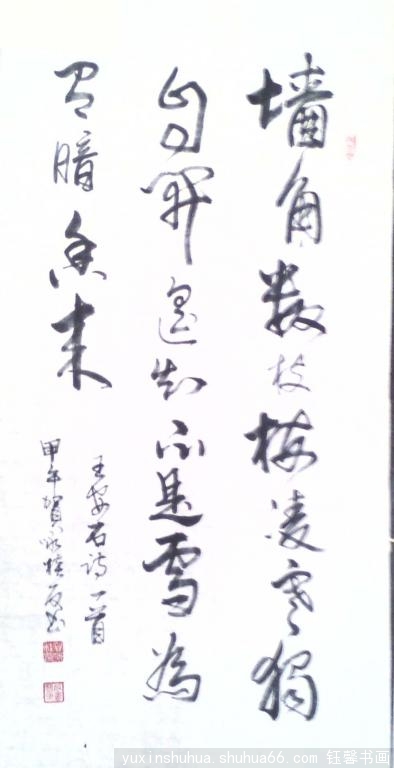 墙角数枝梅凌寒独
自开遥知不是雪为
有暗香来
王安石诗一首
甲午贺
yuxinshuhua.shuhua66.com 钰馨书画